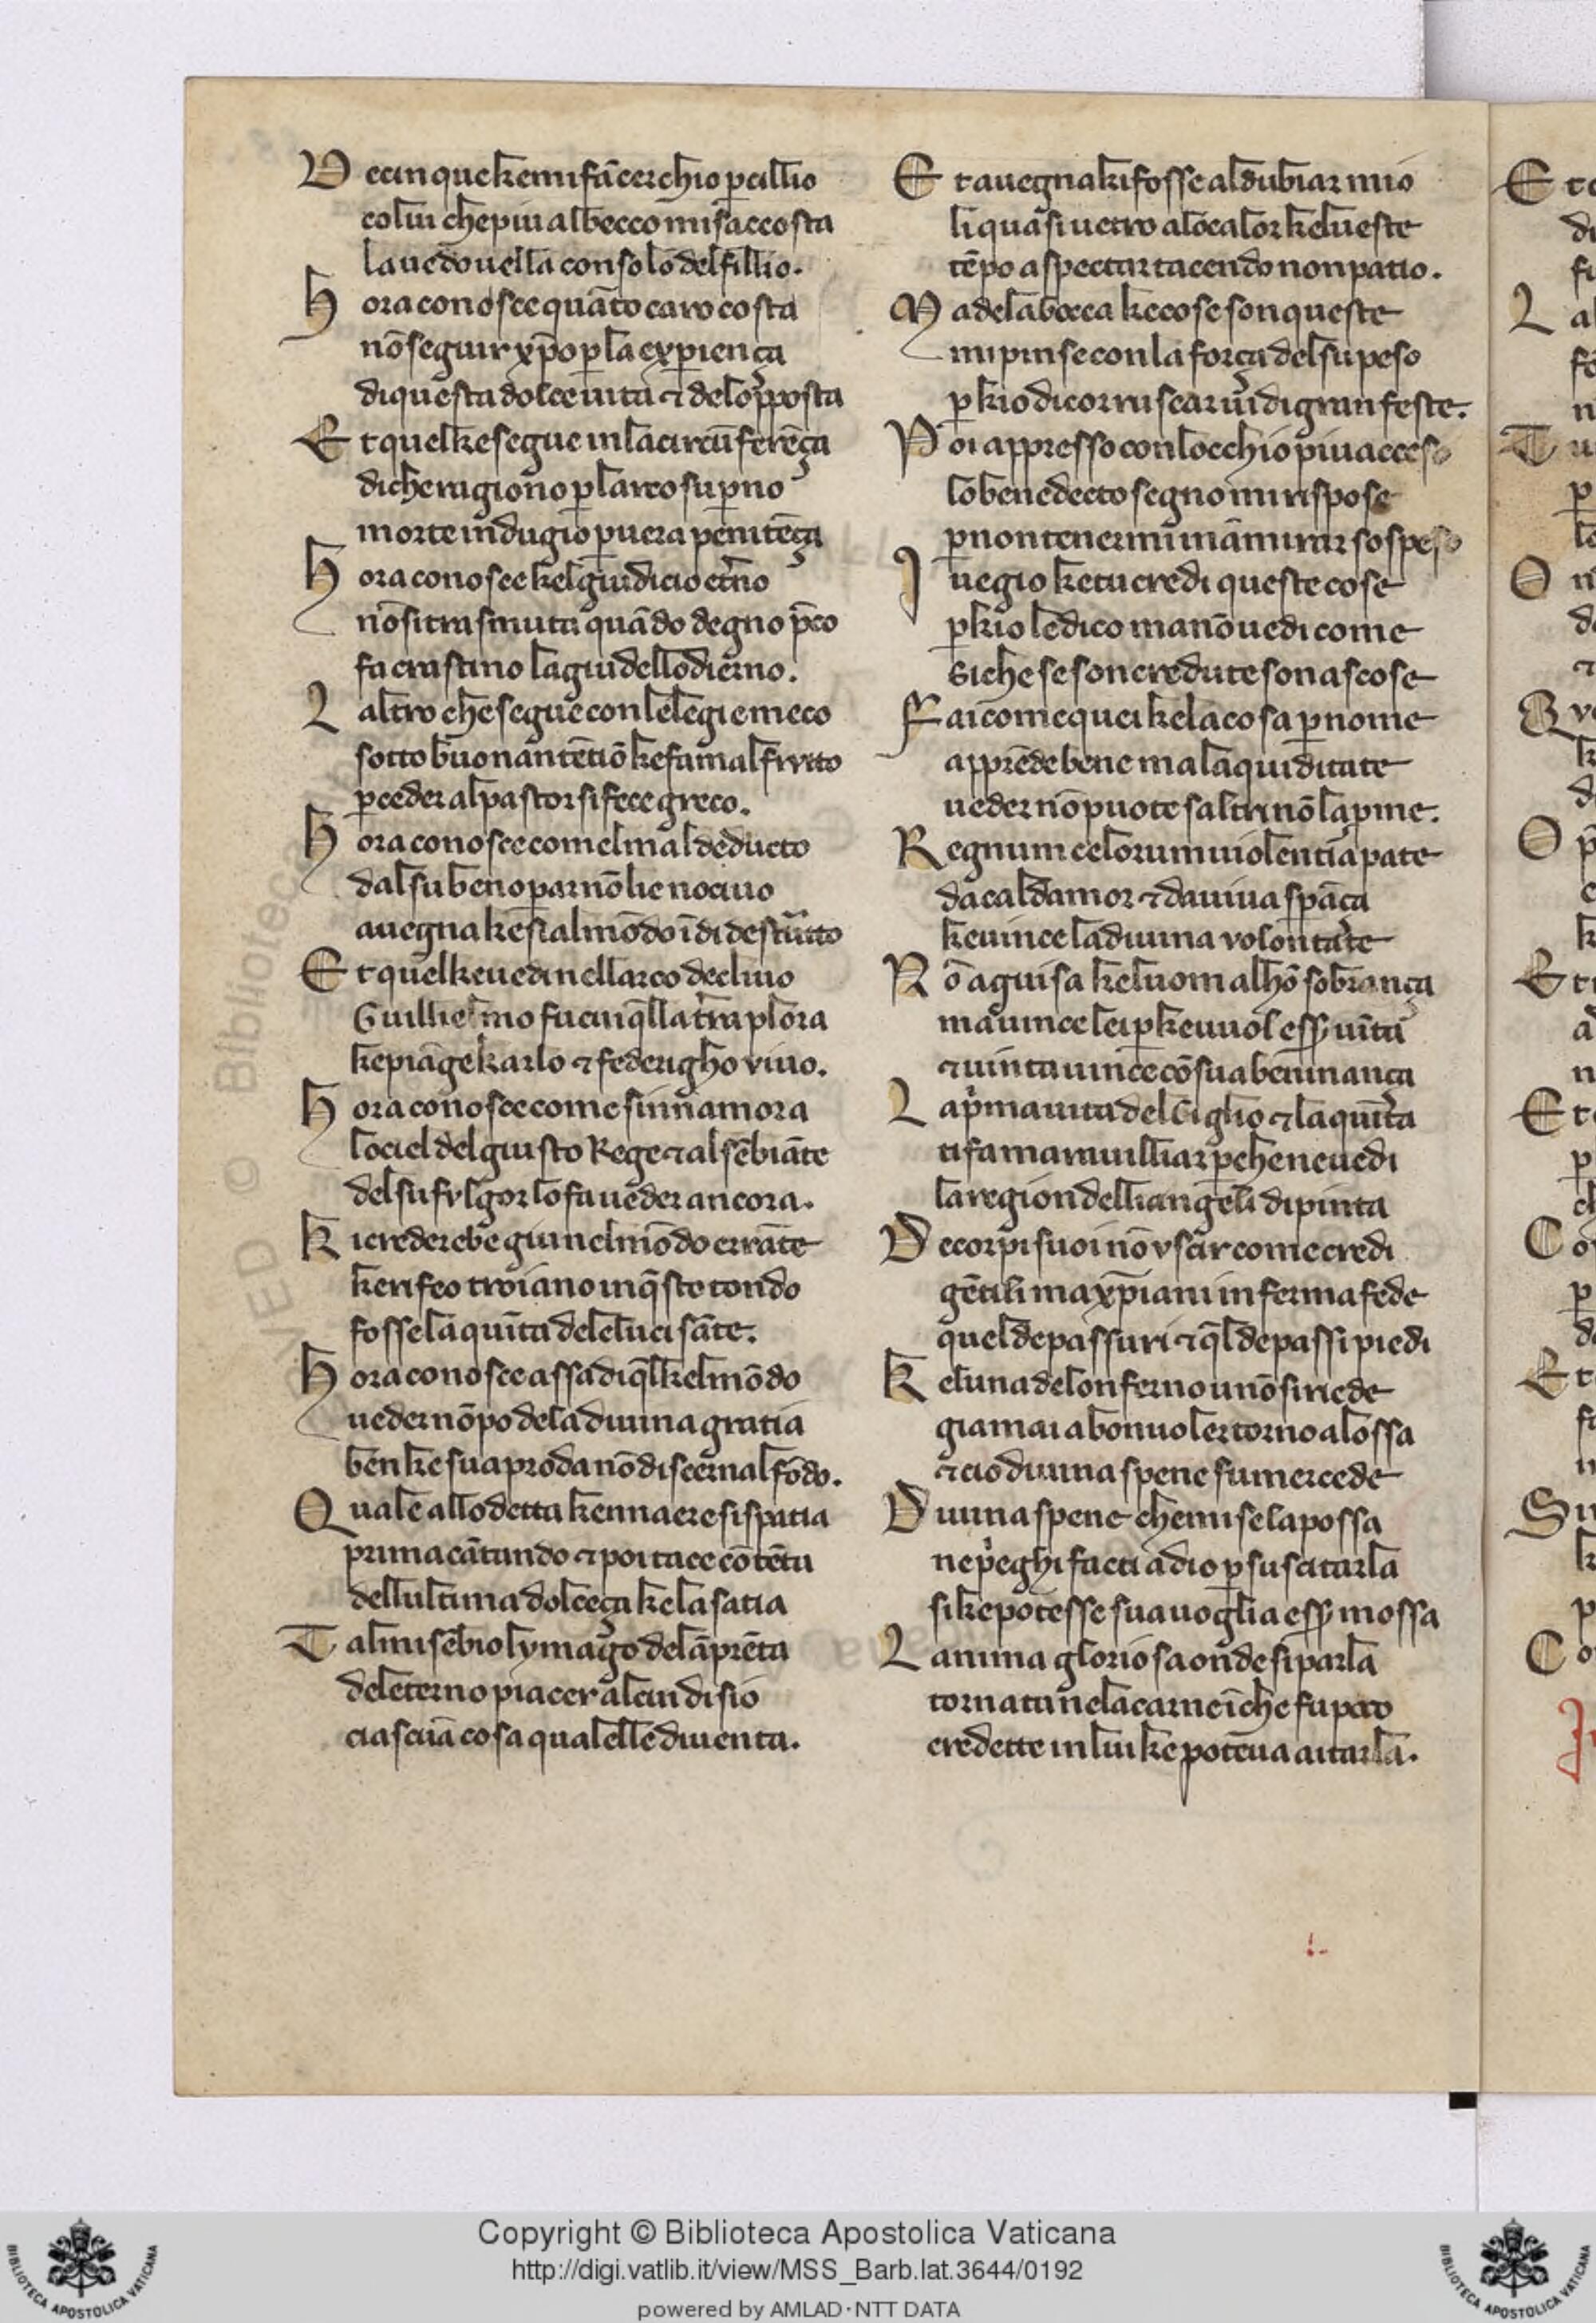 D ecinquekemifācerchio ꝑcillio
colui chepiu albecco misaccosta
lauedouella consolo delfillio.
h ora conosce quāto caro costa
nō seguir xp̄o ꝑ la exꝑiença
di questa dolce uita ⁊ delop̄posta
E t quelke segue in la circūferēça
di che ragiono ꝑ larco suꝑno
morte indugio ꝑ uera penitēça
h ora conosce kel giudicio et̄no
nō si trasmuta quādo degno p̄co
fa crastino lagiu dellodierno.
L altro che segue con le legi e meco
sotto buona ntētiō ke fa mal frvtto
ꝑ ceder al pastor si fece greco.
h ora conosce comel mal deducto
dal su beno par nō lie nociuo
auegna ke sia lmōdo īdi destrutto
E t quel ke uedi nellarco decliuo
Guillielmo fu cui q̄lla t̄ra plora
ke piāge karlo ⁊ federigho viuo.
h ora conosce come sinnamora
lo ciel del giusto Rege ⁊ al sēbiāte
del su fvlgor lo fa ueder ancora.
K i crederebe giu nel mōdo errāte
ke rifeo troiano in q̄sto tondo
fosse la quīta dele luci sāte.
h ora conosce assa di q̄l kel mōdo
ueder nō po dela diuina gratia
ben ke sua proda nō discerna l fōdo.
Q uale allodetta ke nnaere si spatia
prima cātando ⁊ poi tace cōtēta
dellultima dolceça ke la satia
T al mi sēbio lymago dela prēta
del eterno piacer al cui disio
ciascūa cosa qual elle diuenta.
E t auegna ki fosse al dubiar mio
li quasi uetro alo calor kel ueste
tēpo aspectar tacendo non patio.
M a dela bocca ke cose son queste
mi pinse con la força del su peso
ꝑ kio di corruscar uidi gran feste.
P oi appresso con locchio piu acceso
lo benedecto segno mi rispose
ꝑ non tenermi in āmirar sospeso
J uegio ke tu credi queste cose
ꝑ kio le dico ma nō uedi come
Si che se son credute son ascose
F ai come quei ke la cosa ꝑ nome
apprēde bene ma la quiditate
ueder nō puote saltri nō la prime.
R egnum celorum uiolentia pate
da caldamor ⁊ da uiua spāça
ke uince la diuina volontate
N ō a guisa ke luom alhō sobrança
ma uince lei ꝑke vuol ess̄ uīta
⁊ uinta uince cō sua beninança
L a prima uita del Ciglio ⁊ la quīta
ti fa marauilliar ꝑche ne uedi
la region delli angeli dipinta
D e corpi suoi nō vscir come credi
gētili ma xp̄iani in ferma fede
quel de passuri ⁊ q̄l de passi piedi
K e luna delonferno u nō si riede
gia mai a bon uoler torno alossa
⁊ cio di uiua spene fu mercede
D i uiua spene che mise la possa
ne p̄eghi facti a dio ꝑ suscitarla
si ke potesse sua voglia ess̄ mossa
L anima gloriosa onde si parla
tornata nela carne ī che fu poco
credette in lui ke poteua aitarla.
Copyright © Biblioteca Apostolica Vaticana
http://digi.vatlib.it/view/MSS_Barb.lat.3644/0192
powered by AMLAD·NTT DATA